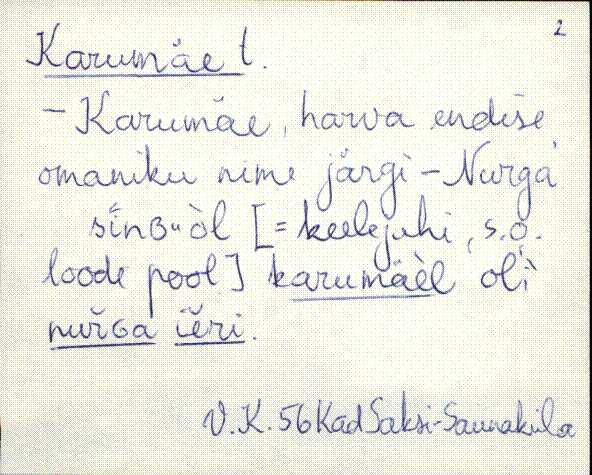 2
Karumäe t.
– Karumäe, harva endise
omaniku nime järgi – Nurga
sīnʙ"òl [= keelejuhi, s.o.
loode pool] karumäèl oĺì
nuřɢa iēri.
V.K. 56 Kad Saksi-Saunaküla